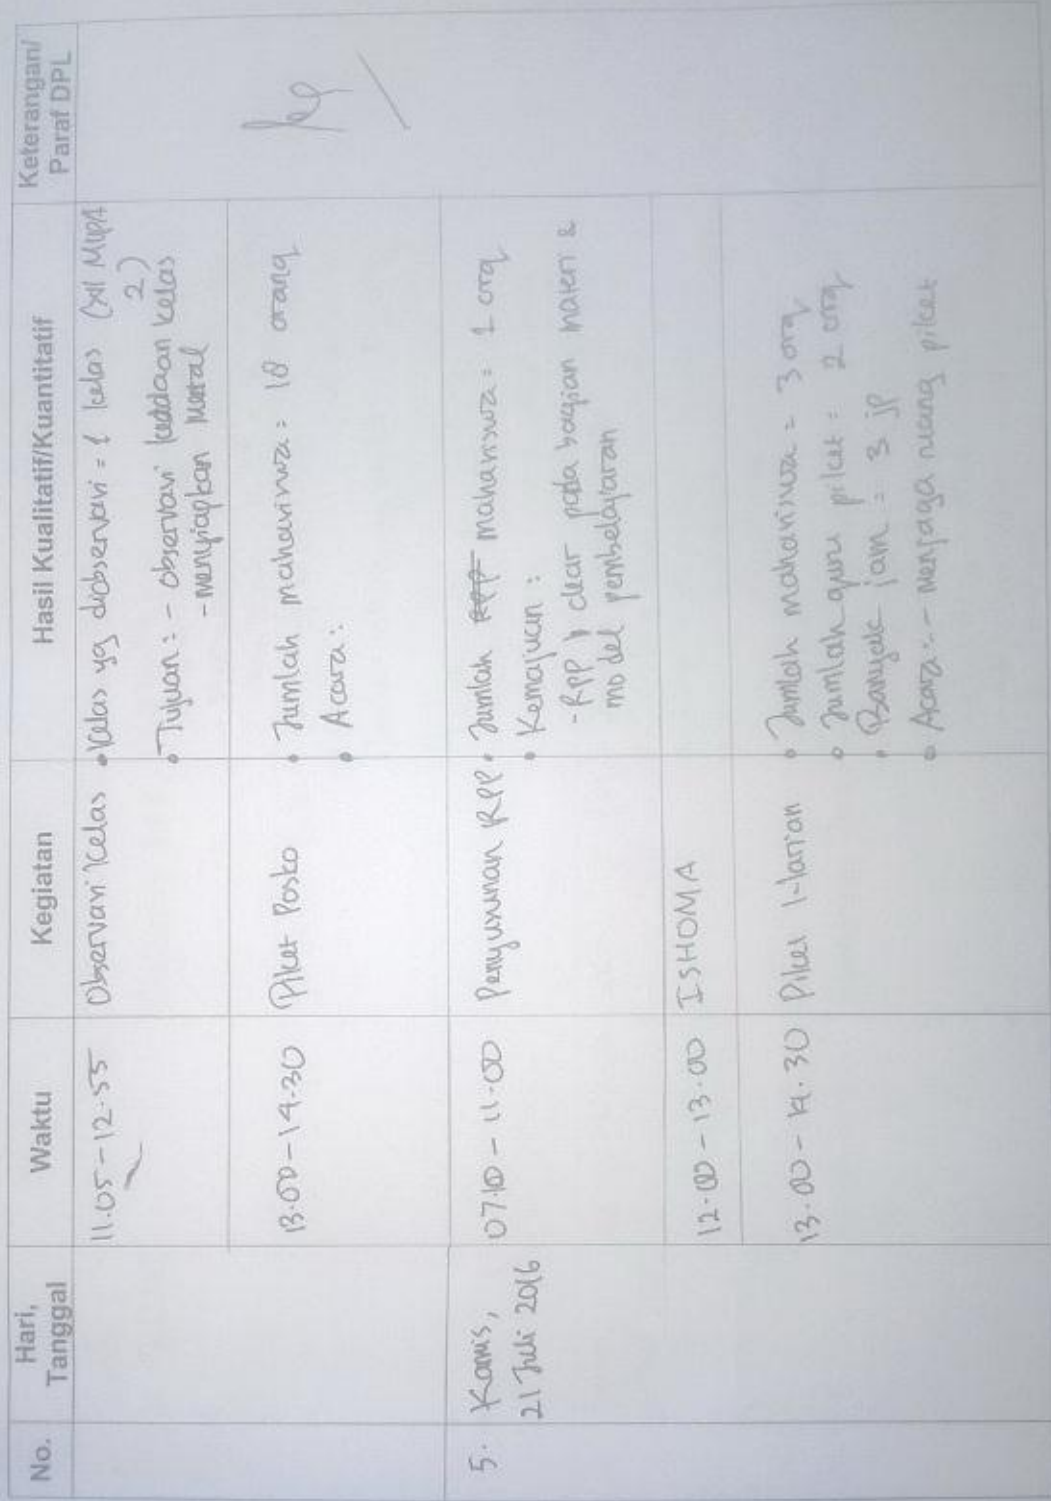 No.
Hari,
Tanggal
Waktu
Kegiatan
Hasil Kualitatif/Kuantitatif
Keterangan/
Paraf DPL
11.05 - 12.55
Observasi Kelas
• Kelas yg diobservasi = 1 kelas (XII MIPA
2)
• Tujuan : - observasi keadaan kelas
- menyiapkan mental
13.00 - 14.30
Piket Posko
• Jumlah mahasiswa = 18 orang
• Acara :
5.
Kamis,
21 Juli 2016
07.10 - 11.00
Penyusunan RPP
• Jumlah RPP mahasiswa = 1 orq
• Kemajuan :
- RPP 1 clear pada bagian materi &
model pembelajaran
12.00 - 13.00
ISHOMA
13.00 - 14.30
Piket Harian
• Jumlah mahasiswa = 3 orq
• Jumlah guru piket = 2 orq
• Banyak jam = 3 jp
• Acara : - menjaga ruang piket